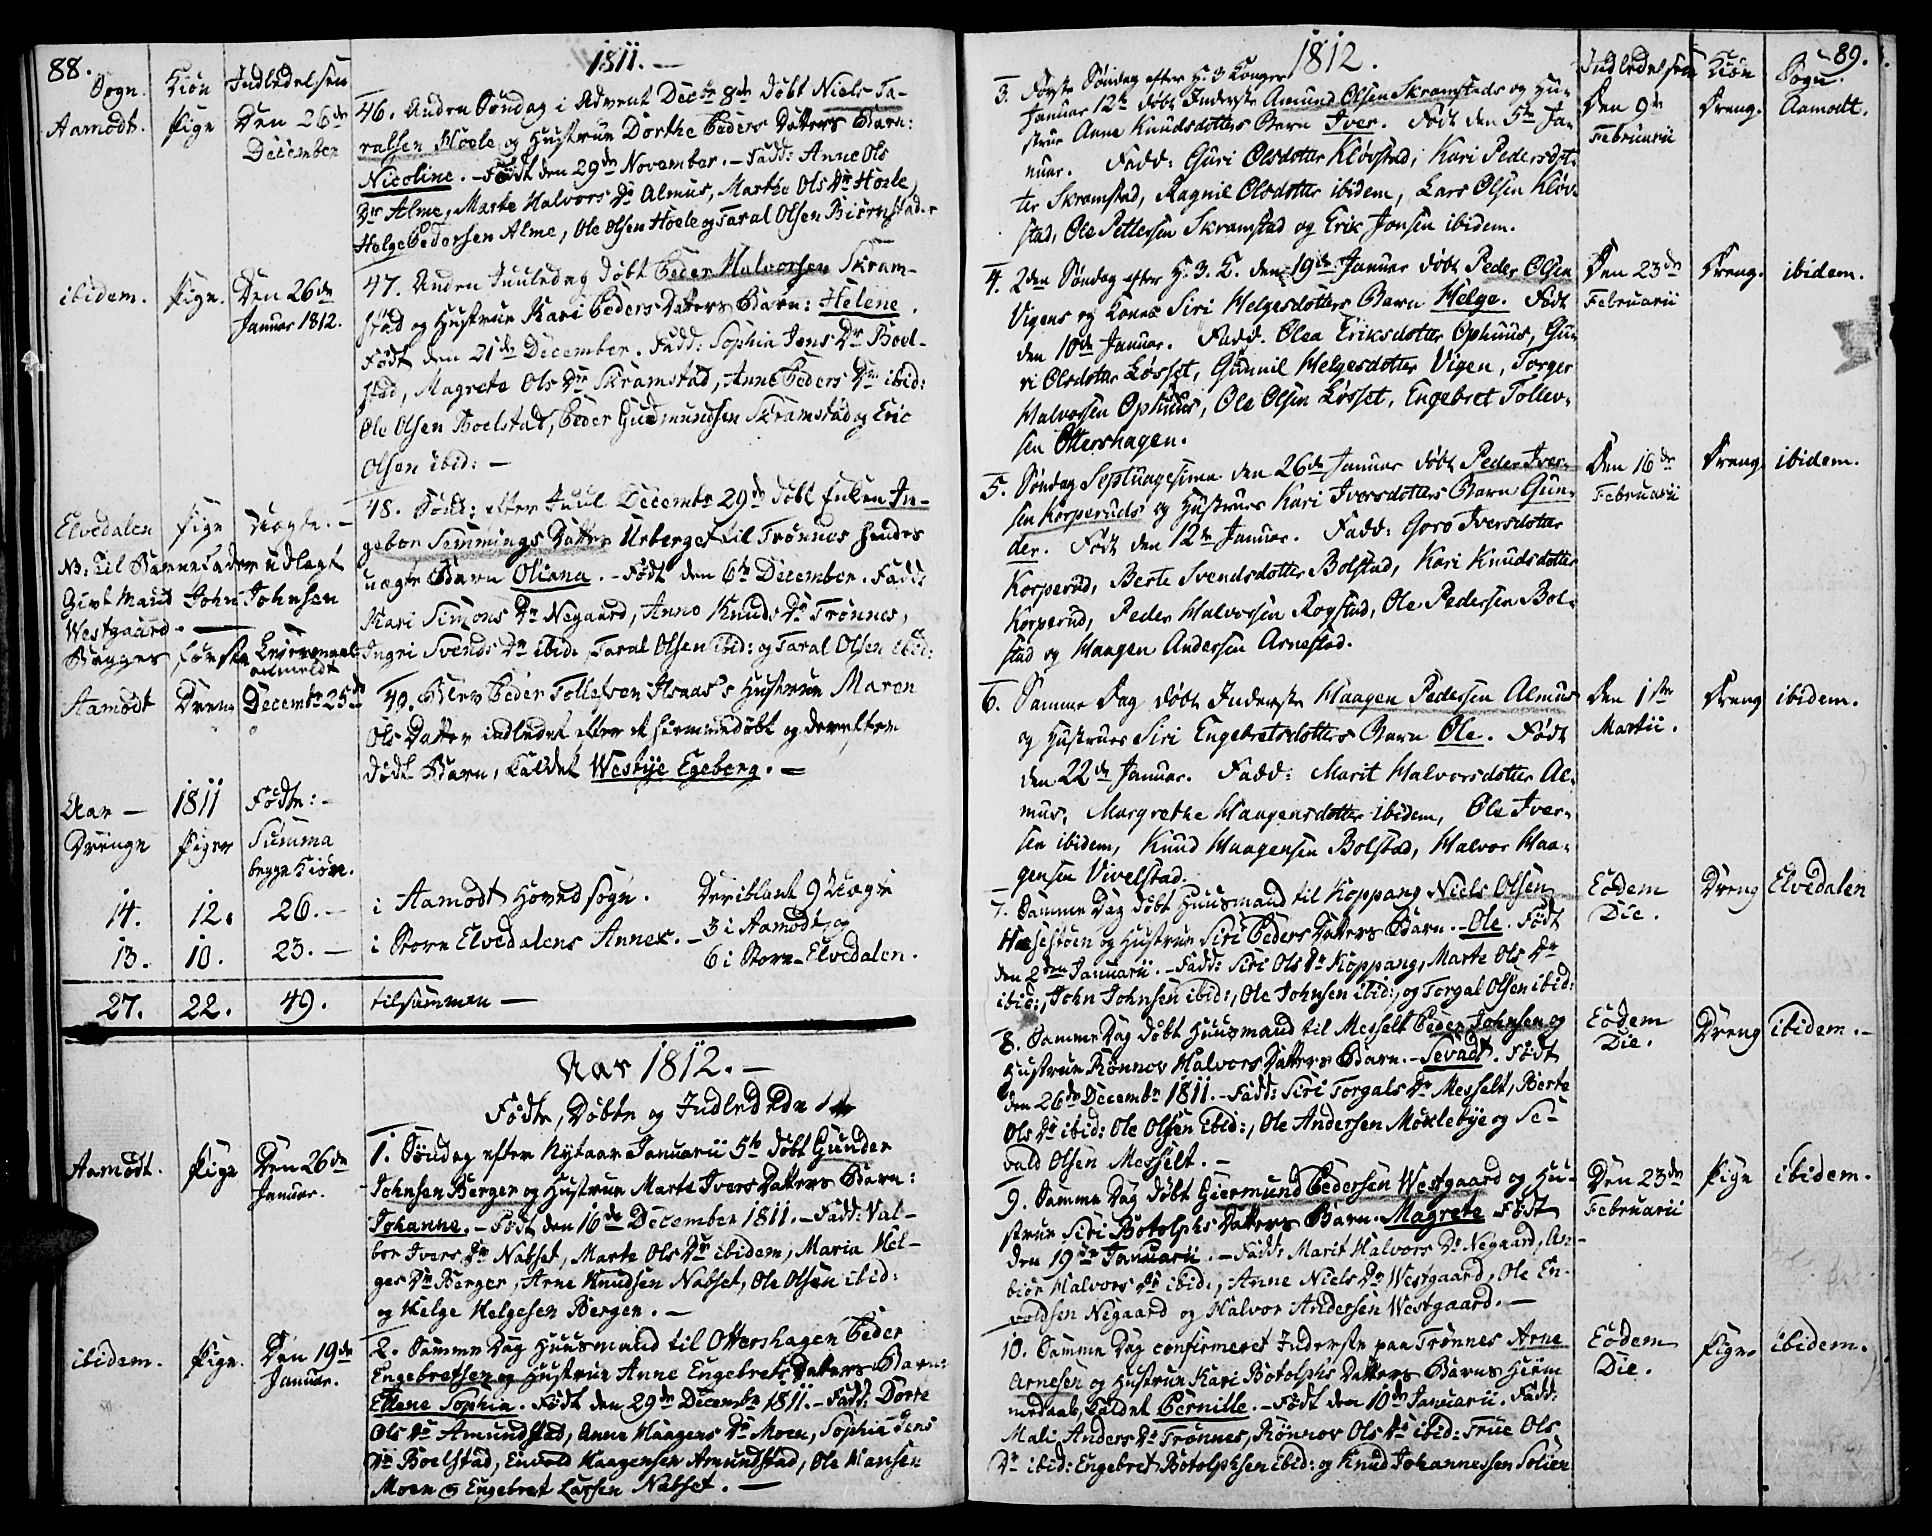 88.
1811. —
Sogn. Kiön Indledelsen
Aamodt. Pige Den 26de December
46. Anden Söndag i Advent Decbr 8de döbt Niels Ta-
ralsen Hoele og Hustrue Dorthe Peders Datters Barn:
Nicoline. – Födt den 29de November. – Fadd: Anne Ols
Dtr Alme, Marte Halvors Dr Almus, Marthe Ols Dr Hoele,
Helge Pedersen Alme, Ole Olsen Hoele og Taral Olsen Biörnstad.
ibidem. Pige. Den 26de Januar 1812.
47. Anden Juuledag döbt Peder Halvorsen Skram-
stad og Hustrue Kari Peders Datters Barn: Helene.
Födt den 21de December. Fadd: Sophia Jens Dr Boel-
stad, Magrete Ols Dr Skramstad, Anne Peders Dr ibid:
Ole Olsen Boelstad, Peder Gudmundsen Skramstad og Eric
Olsen ibid: —
Elvedalen Pige Uægte. –
NB: Til Barnefader udlagt
Givt Mand John Johnsen
Westgaard. —
Begges förste Leiermaal
anmeldt
48. Sönd: efter Juul Decembr 29de döbt Enken In-
gebor Simmings Datter Urberget til Trönnes hendes
uægte Barn Oliana. – Födt den 6te December. Fadd:
Kari Simons Dr Negaard, Anne Knuds Dr Trönnes,
Ingri Svends Dr ibid: Taral Olsen ibid: og Taral Olsen ibid:
Aamodt Dreng Decembr 25de
49. Blev Peder Tollefsen Asnæs's Hustrue Maren
Ols Datter indledet efter et hiemmedöbt og derefter
dödt Barn, kaldet Westye Egeberg. —
Aar — 1811 Födte: –
Drenge Piger Summa
begge Kiön.
14. 12. 26. – i Aamodt Hovedsogn. Deriblant 9 Uægte
13. 10. 23. – i Store Elvedalens Annex. – 3 i Aamodt, og
6 i Store-Elvedalen.
27. 22. 49. tilsammen —
Aar 1812. —
Födte, Döbte og Indledede
Aamodt. Pige Den 26de Januar.
1. Söndag efter Nytaar Januarii 5te döbt Gunder
Johnsen Berger og Hustrue Marte Ivers Datters Barn:
Johanne. – Födt den 16de December 1811. – Fadd: Val-
bor Ivers Dr Nabset, Marte Ols Dr ibidem, Maria Hel-
ges Dr Berger, Arne Knudsen Nabset, Ole Olsen ibid:
og Helge Helgesen Bergen. —
ibidem. Pige. Den 19de Januar.
2. Samme Dag Huusmand til Ottershagen Peder
Engebretsen og Hustrue Anne Engebrets Datters Barn:
Ellene Sophia. Födt den 29de Decembr 1811. – Fadd: Dorte
Ols Dr Amundstad, Anne Haagens Dr Moen, Sophia Jens
Dr Boelstad, Envold Haagensen Amundstad, Ole Hansen
Moen og Engebret Larsen Nabset. —
1812.
89.
Indledelsen Kiön Sogn.
3. Förste Söndag efter H. 3 Konger
Januar 12te döbt Inderste Amund Olsen Skramstads og Hu-
strue Anne Knudsdotters Barn Iver. Födt den 5te Ja-
nuar. Fadd: Guri Olsdotter Klövstad, Kari Pedersdot-
ter Skramstad, Ragnil Olsdotter ibidem, Lars Olsen Klöv-
stad, Ole Pettersen Skramstad og Erik Jonsen ibidem.
Den 9de Februarii Dreng. Aamodt.
4. 2den Söndag efter H. 3. K. den 19de Januar döbt Peder Olsen
Vigens og Konas Siri Helgesdotters Barn Helge. Födt
den 10de Januar. Fadd. Olea Eriksdotter Ophuus, Gu-
ri Olsdotter Lösset, Gunnil Helgesdotter Vigen, Torger
Halvorsen Ophuus, Ole Olsen Lösset, Engebret Tollev-
sen Ottershagen.
Den 23de Februarii Dreng. ibidem.
5. Söndag Septuagesima den 26de Januar döbt Peder Iver-
sen Korperuds og Hustrues Kari Iversdotters Barn Gun-
der. Födt den 12te Januar. Fadd: Goro Iversdotter
Korperud, Berte Svendsdotter Bolstad, Kari Knudsdotter
Korperud, Peder Halvorsen Rogstad, Ole Pedersen Bol-
stad og Haagen Andersen Arnestad.
Den 16de Februarii Dreng ibidem.
6. Samme Dag döbt Inderste Haagen Pedersen Almus
og Hustrues Siri Engebretsdotters Barn Ole. Födt
den 22de Januar. Fadd: Marit Halvorsdotter Al-
mus, Margrethe Haagensdotter ibidem, Ole Iver-
sen ibidem, Knud Haagensen Bolstad, Halvor Haa-
gensen Vivelstad.
Den 1ste Martii. Dreng ibidem.
7. Samme Dag döbt Huusmand til Koppang Niels Olsen
Hæsestöen og Hustrue Siri Peders Datters Barn. – Ole. Födt
den 2den Januarii. – Fadd: Siri Ols Dr Koppang, Marte Ols Dr
ibid:, John Johnsen ibid:, Ole Johnsen ibid:, og Torgal Olsen ibid:
Eodem Die. Dreng Elvedalen
8. Samme Dag döbt Huusmand til Messelt Peder Johnsen og
Hustrue Rönnov Halvors Datters Barn. – Sevadt. Födt
den 26de Decembr 1811. – Fadd: Siri Torgals Dr Messelt, Berte
Ols Dr ibid: Ole Olsen ibid:, Ole Andersen Möklebye og Se-
vald Olsen Messelt. –
Eodem Die. Dreng ibidem. –
9. Samme Dag döbt Giermund Pedersen Westgaard og Hu-
strue Siri Botolphs Datters Barn. Magrete Födt
den 19de Januarii. – Fadd: Marit Halvors Dr Negaard, An-
biör Halvors Dr ibid:, Anne Niels Dr Westgaard, Ole En-
voldsen Negaard og Halvor Andersen Westgaard. —
Den 23de Februarii Pige ibidem.
10. Samme Dag confirmeret Inderste paa Trönnes Arne
Arnesen og Hustrue Kari Botolphs Datters Barns Hiem-
medaab, kaldet Pernille. – Födt den 10de Januarii. Fadd:
Mali Anders Dr Trönnes, Rönnov Ols Dr ibid: True Ols
Dr ibid: Engebret Botolphsen ibid: og Knud Johannessen Solien
Eodem Die. Pige. ibidem.